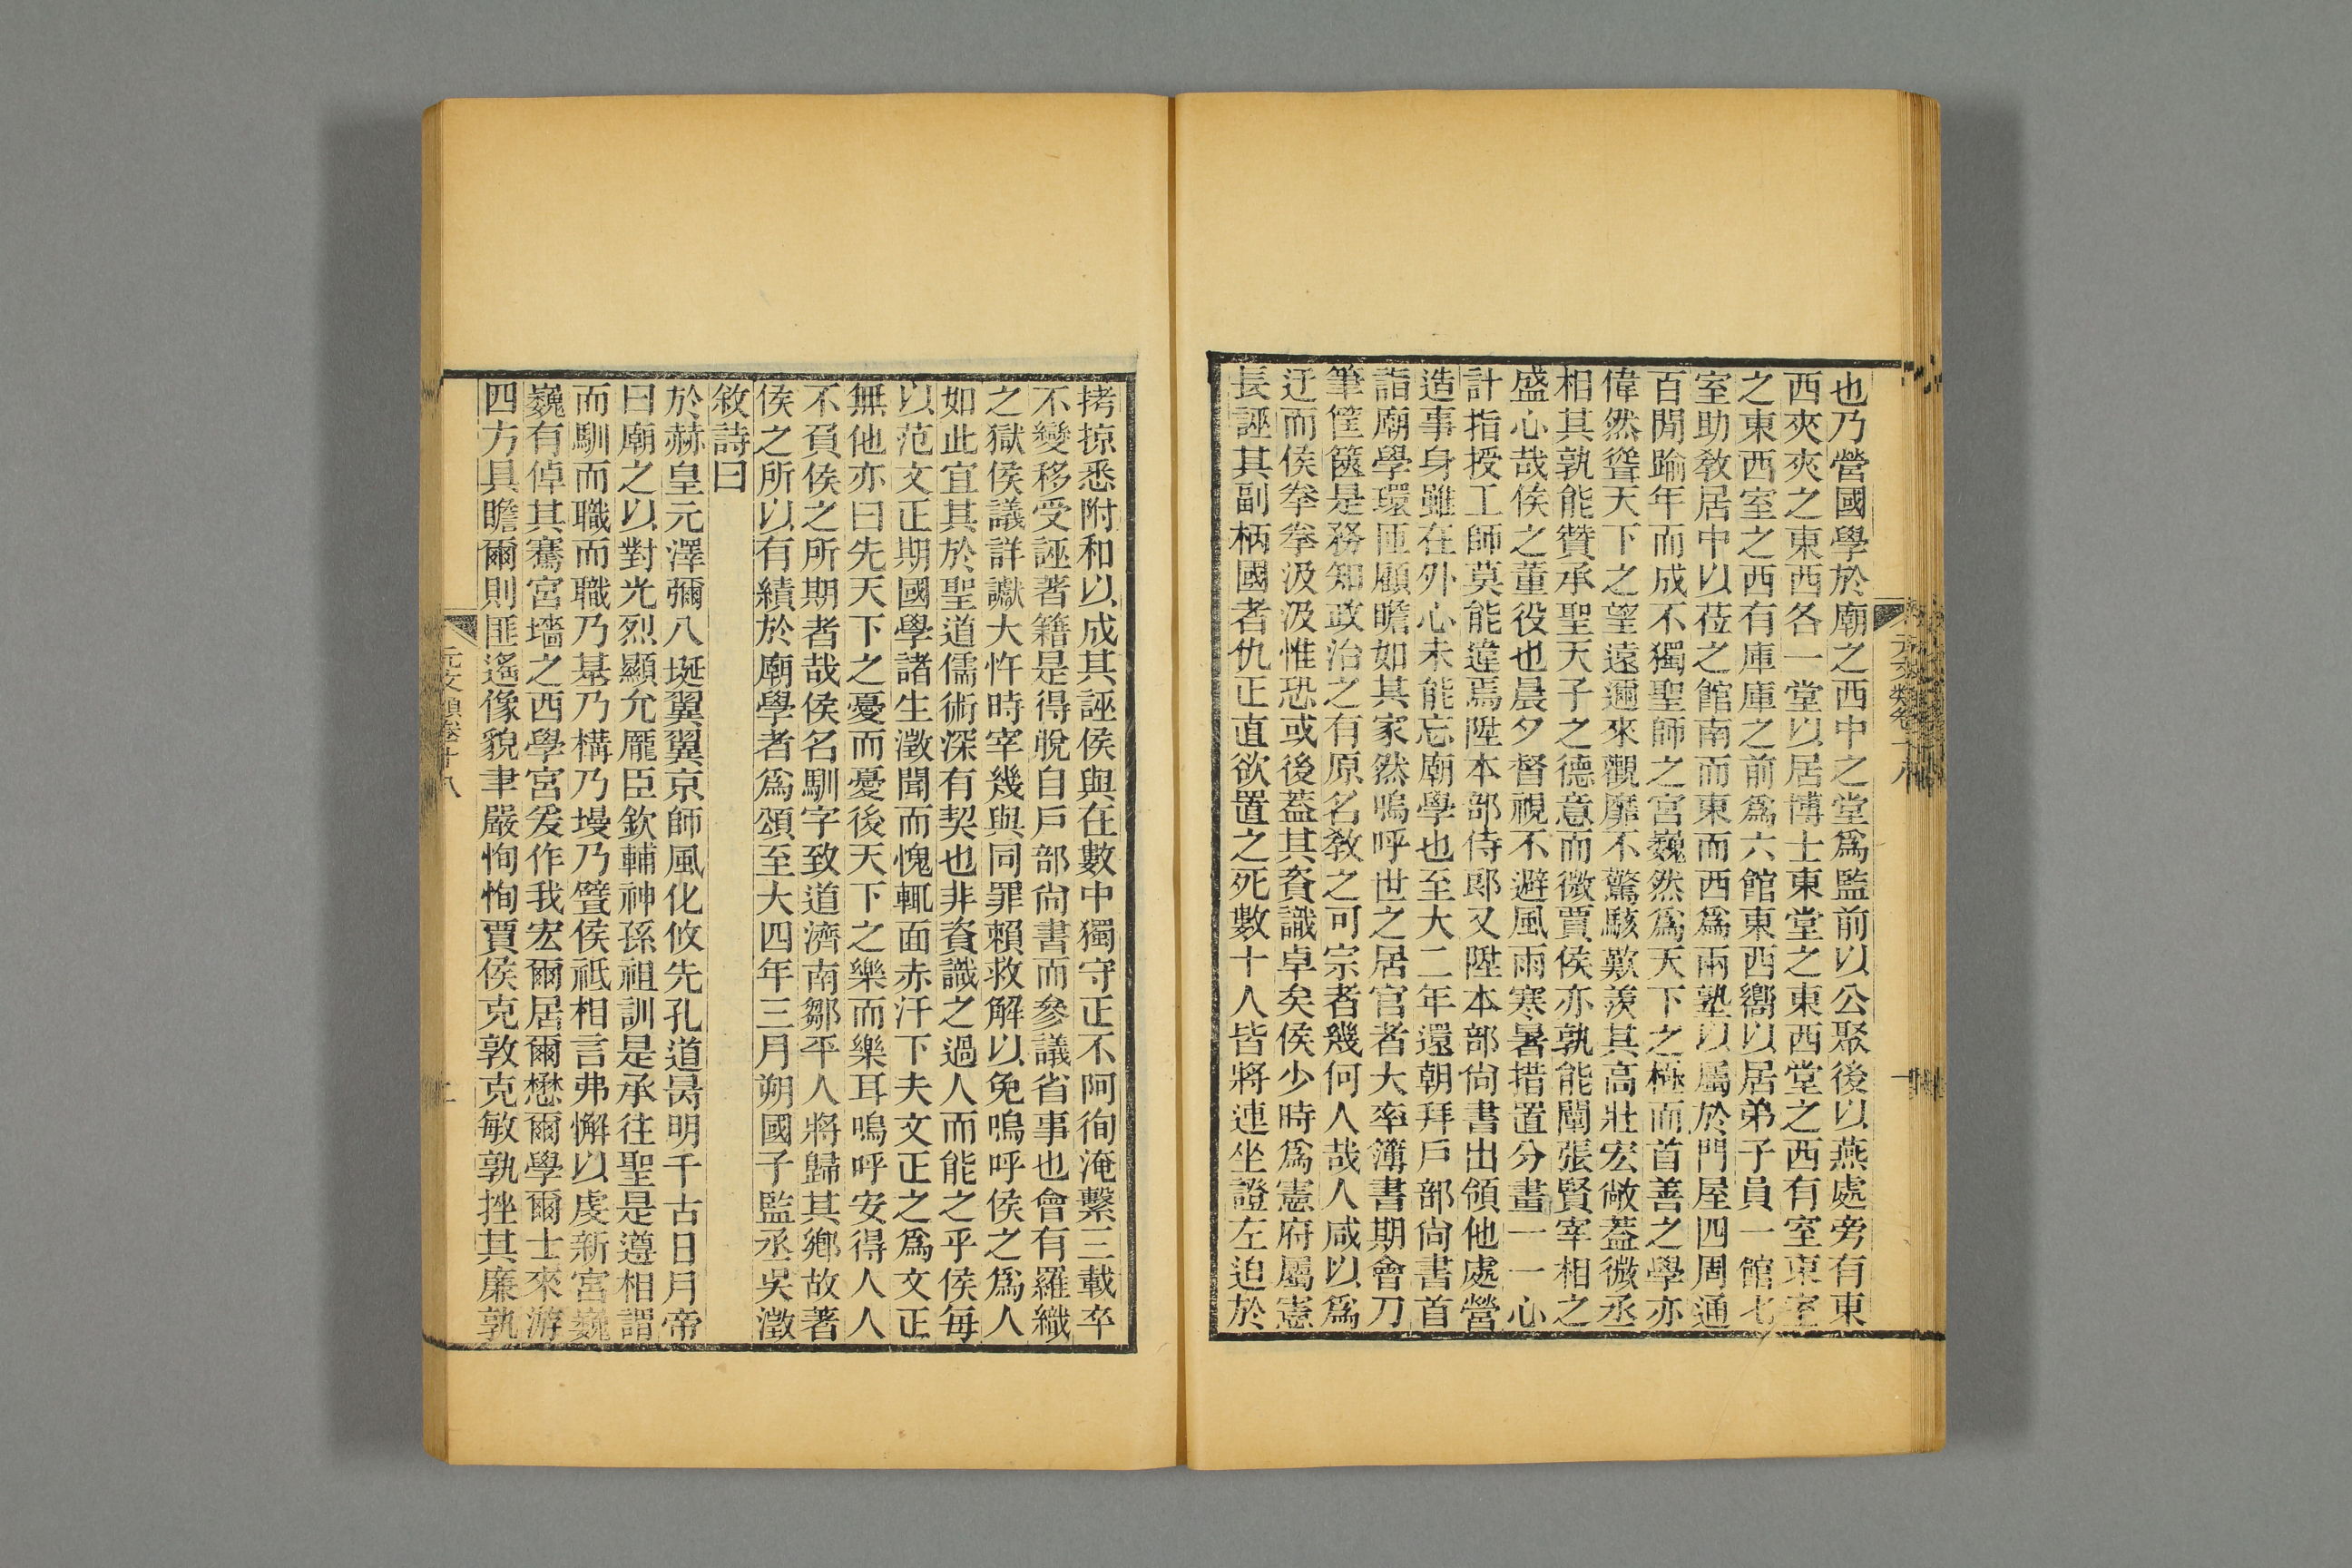 也乃營國學於廟之西中之堂爲監前以公聚後以燕處旁有東
西夾夾之東西各一堂以居博士東堂之東西堂之西有室東室
之東西室之西有庫庫之前爲六館東西嚮以居弟子員一館七
室助敎居中以莅之館南而東而西爲兩塾以屬於門屋四周通
百閒踰年而成不獨聖師之宮巍然爲天下之極而首善之學亦
偉然聳天下之望遠邇來觀靡不驚駭歎羨其高壯宏敞蓋微丞
相其孰能贊承聖天子之德意而微賈侯亦孰能闡張賢宰相之
盛心哉侯之董役也晨夕督視不避風雨寒暑措置分畫一一心
計指授工師莫能違焉陞本部侍郎又陞本部尙書出領他處營
造事身雖在外心未能忘廟學也至大二年還朝拜戶部尙書首
詣廟學環匝顧瞻如其家然嗚呼世之居官者大率簿書期會刀
筆筐篋是務知政治之有原名敎之可宗者幾何人哉人咸以爲
迂而侯拳拳汲汲惟恐或後蓋其資識卓矣侯少時爲憲府屬憲
長誣其副柄國者仇正直欲置之死數十人皆將連坐證左迫於
拷掠悉附和以成其誣侯與在數中獨守正不阿徇淹繫三載卒
不變移受誣著籍是得脫自戶部尙書而參議省事也會有羅織
之獄侯議詳讞大忤時宰幾與同罪賴救解以免嗚呼侯之爲人
如此宜其於聖道儒術深有契也非資識之過人而能之乎侯每
以范文正期國學諸生澂聞而愧輒面赤汗下夫文正之爲文正
無他亦曰先天下之憂而憂後天下之樂而樂耳嗚呼安得人人
不負侯之所期者哉侯名馴字致道濟南鄒平人將歸其鄕故著
侯之所以有績於廟學者爲頌至大四年三月朔國子監丞吳澂
敘詩曰
於赫皇元澤彌八埏翼翼京師風化攸先孔道昺明千古日月帝
曰廟之以對光烈顯允厖臣欽輔神孫祖訓是承往聖是遵相謂
而馴而職而職乃基乃構乃墁乃甓侯祗相言弗懈以虔新宮巍
巍有倬其騫宮墻之西學宮爰作我宏爾居爾懋爾學爾士來游
四方具瞻爾則匪遙像貌聿嚴恂恂賈侯克敦克敏孰挫其廉孰
元文類卷十八